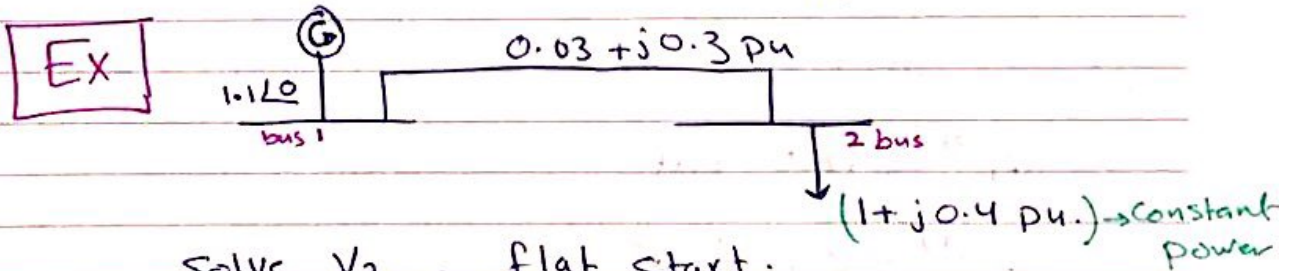 Ex
G
0.03 + j0.3 pu
1.1∠0
bus 1
2 bus
(1 + j0.4 pu.) → Constant
power
Solve V2 flat start.